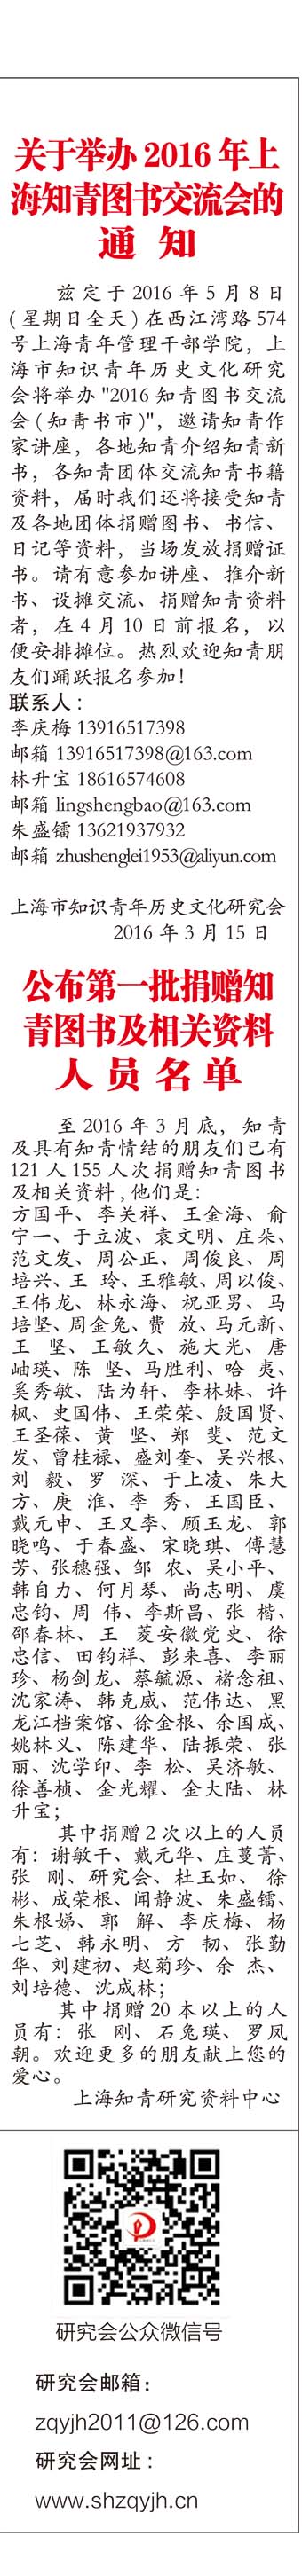 关于举办 2016 年上
海知青图书交流会的
通 知
兹定于 2016 年 5 月 8 日
(星期日全天)在西江湾路 574
号上海青年管理干部学院，上
海市知识青年历史文化研究
会将举办"2016 知青图书交流
会(知青书市)"，邀请知青作
家讲座，各地知青介绍知青新
书，各知青团体交流知青书籍
资料，届时我们还将接受知青
及各地团体捐赠图书、书信、
日记等资料，当场发放捐赠证
书。请有意参加讲座、推介新
书、设摊交流、捐赠知青资料
者，在 4 月 10 日前报名，以
便安排摊位。热烈欢迎知青朋
友们踊跃报名参加！
联系人：
李庆梅 13916517398
邮箱 13916517398@163.com
林升宝 18616574608
邮箱 lingshengbao@163.com
朱盛镭 13621937932
邮箱 zhushenglei1953@aliyun.com
上海市知识青年历史文化研究会
2016 年 3 月 15 日
公布第一批捐赠知
青图书及相关资料
人 员 名 单
至 2016 年 3 月底，知青
及具有知青情结的朋友们已有
121 人 155 人次捐赠知青图书
及相关资料，他们是：
方国平、李关祥、王金海、俞
宁一、于立波、袁文明、庄朵、
范文发、周公正、周俊良、周
培兴、王 玲、王雅敏、周以俊、
王伟龙、林永海、祝亚男、马
培坚、周金兔、费 放、马元新、
王 坚、王敏久、施大光、唐
岫瑛、陈 坚、马胜利、哈 夷、
奚秀敏、陆为轩、李林妹、许
枫、史国伟、王荣荣、殷国贤、
王圣葆、黄 坚、郑 斐、范文
发、曾桂禄、盛刘奎、吴兴根、
刘 毅、罗 深、于上凌、朱大
方、庚 淮、李 秀、王国臣、
戴元申、王又李、顾玉龙、郭
晓鸣、于春盛、宋晓琪、傅慧
芳、张穗强、邹 农、吴小平、
韩自力、何月琴、尚志明、虞
忠钧、周 伟、李斯昌、张 楷、
邵春林、王 菱安徽党史、徐
忠信、田钧祥、彭来喜、李丽
珍、杨剑龙、蔡毓源、褚念祖、
沈家涛、韩克威、范伟达、黑
龙江档案馆、徐金根、余国成、
姚林义、陈建华、陆振荣、张
丽、沈学印、李 松、吴济敏、
徐善桢、金光耀、金大陆、林
升宝；
其中捐赠 2 次以上的人员
有：谢敏干、戴元华、庄蔓菁、
张 刚、研究会、杜玉如、徐
彬、成荣根、闻静波、朱盛镭、
朱根娣、郭 解、李庆梅、杨
七芝、韩永明、方 韧、张勤
华、刘建初、赵菊珍、余 杰、
刘培德、沈成林；
其中捐赠 20 本以上的人
员有：张 刚、石兔瑛、罗凤
朝。欢迎更多的朋友献上您的
爱心。
上海知青研究资料中心
研究会公众微信号
研究会邮箱：
zqyjh2011@126.com
研究会网址：
www.shzqyjh.cn